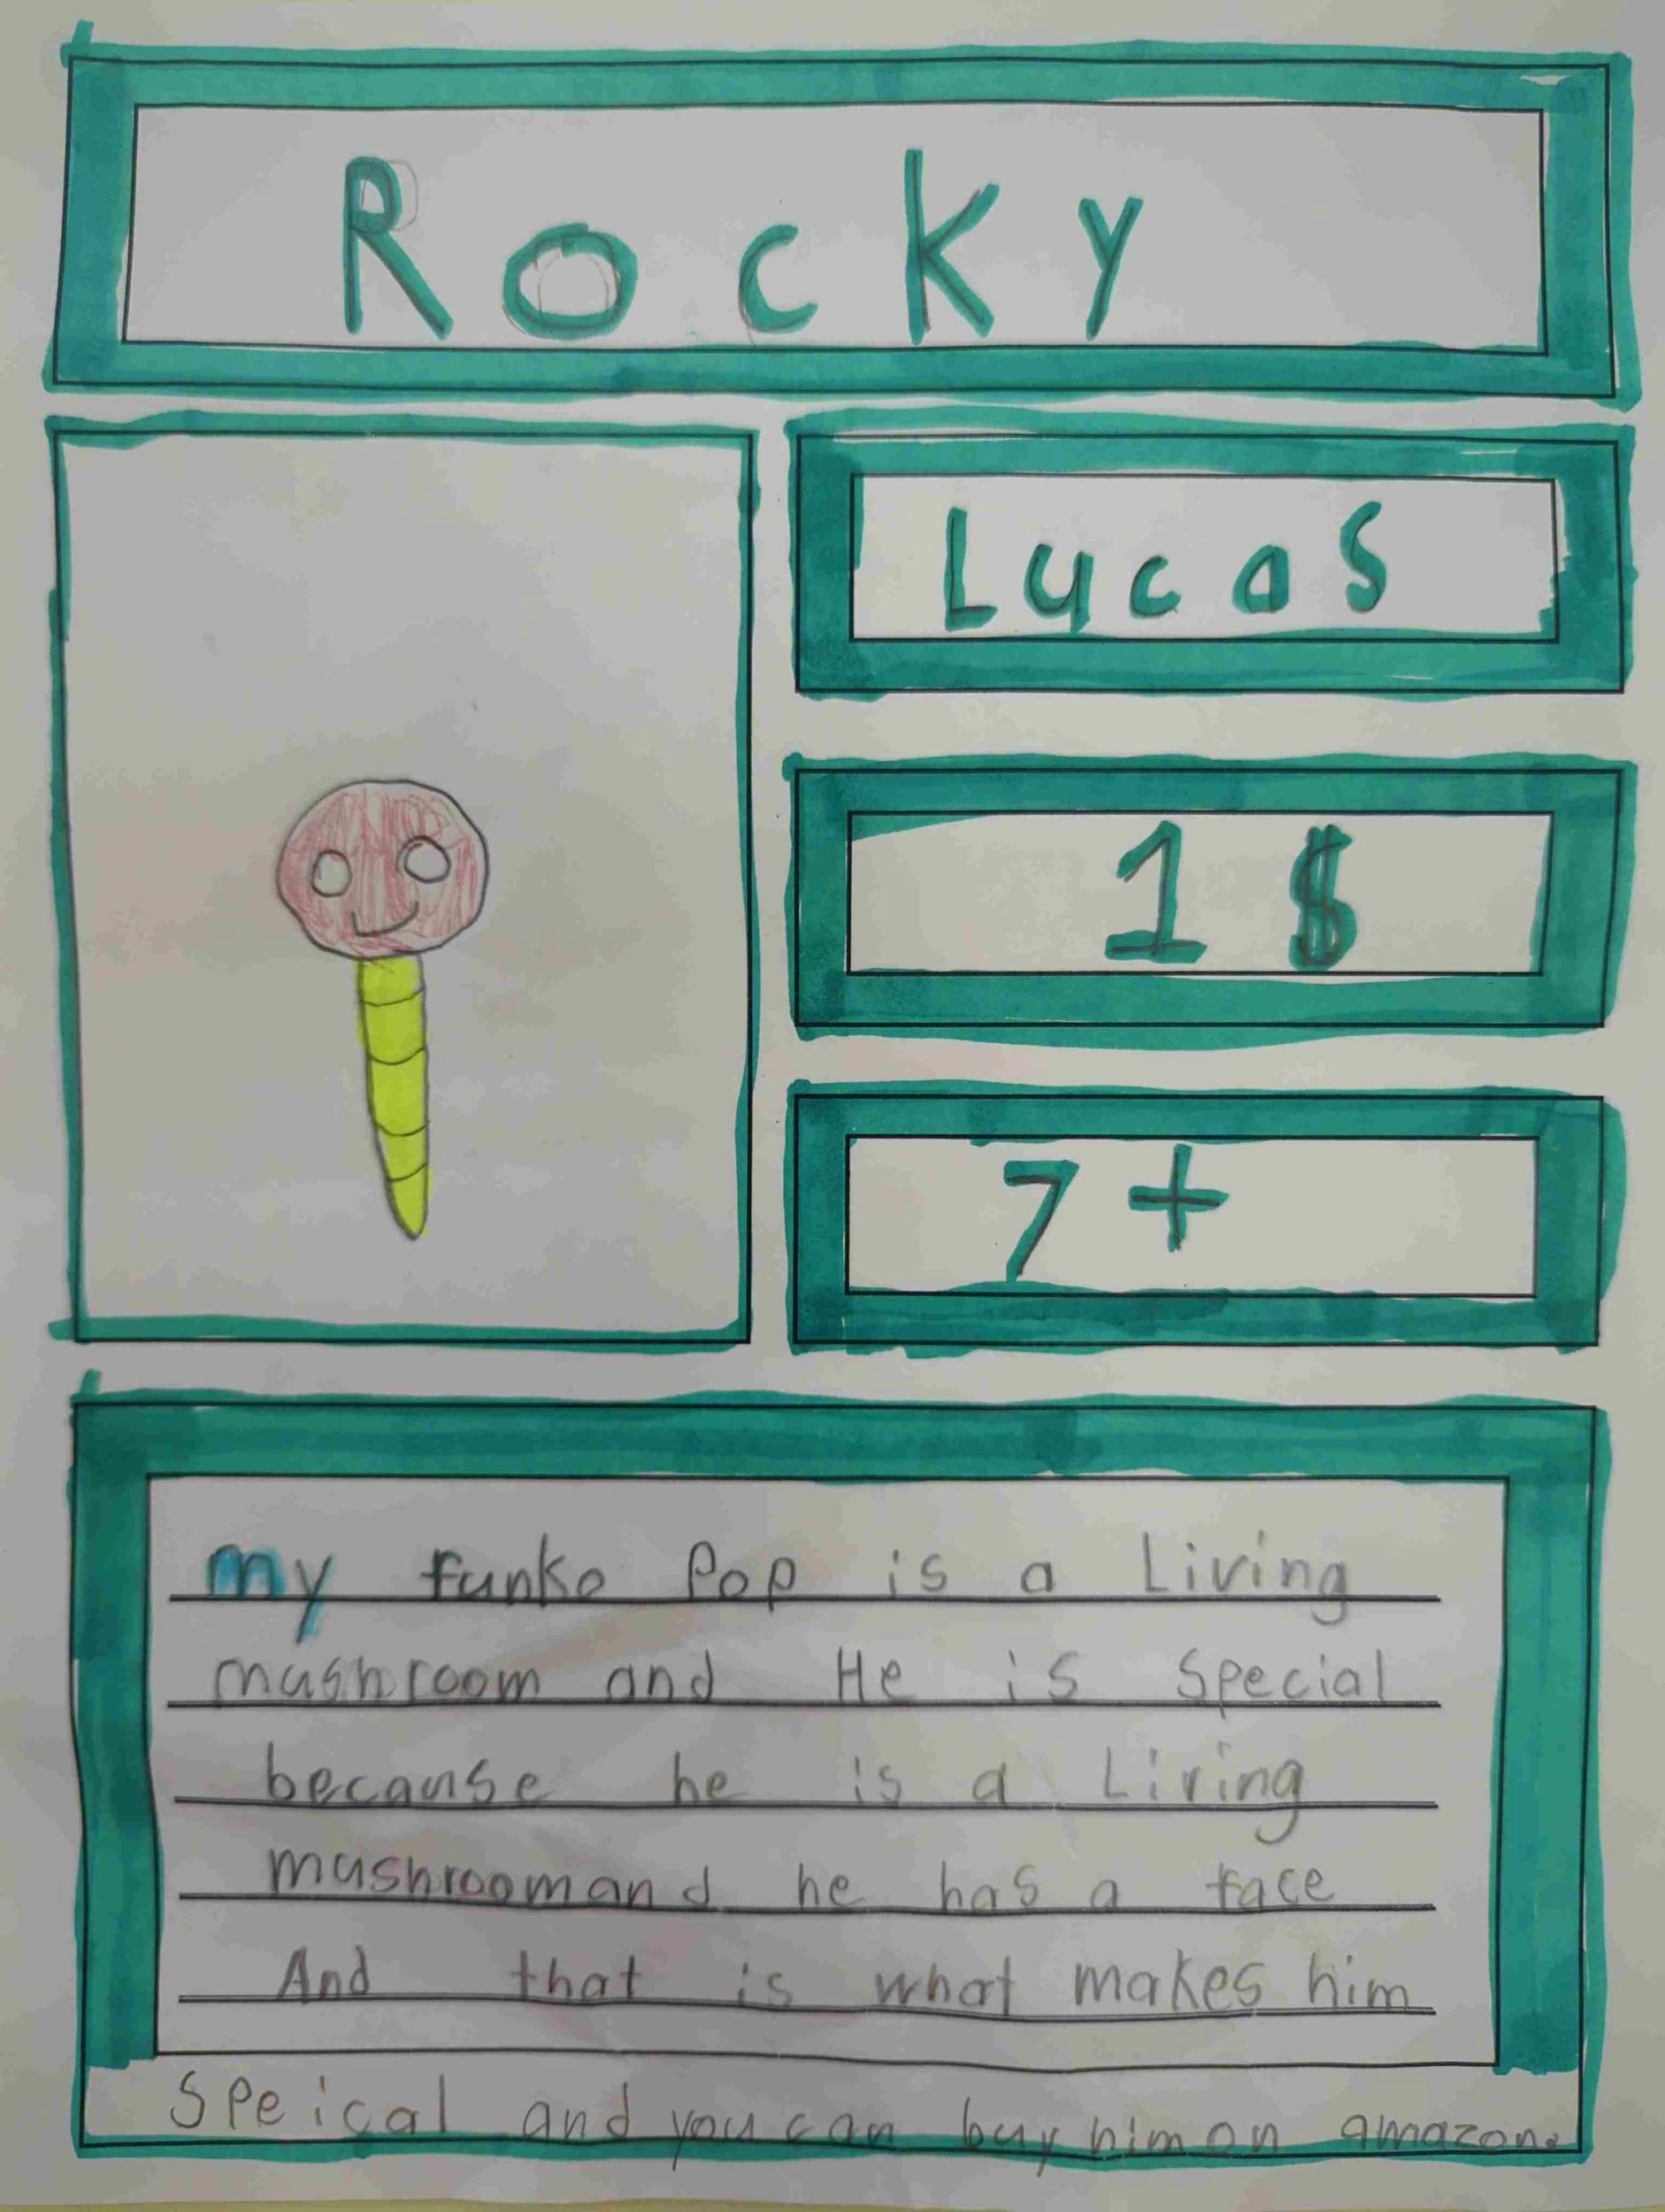 Rocky
Lucas
1 $
7 +
my funko Pop is a Living
mushroom and He is special
because he is a Living
mushroomand he has a face
And that is what makes him
Speical and you can buy him on amazon.